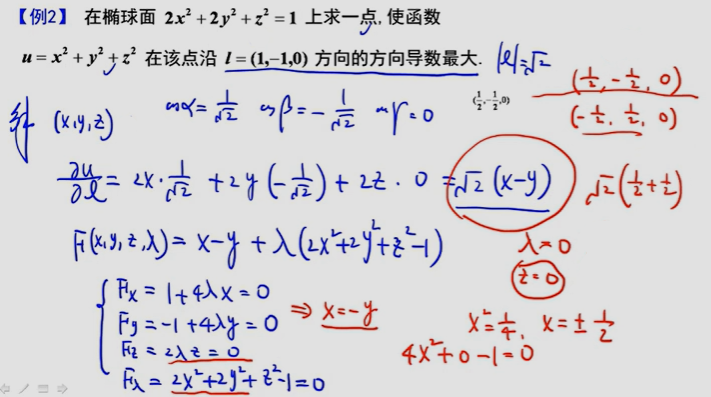 【例2】在椭球面 2x²+2y²+z²=1 上求一点,使函数
u=x²+y²+z² 在该点沿 l=(1,-1,0) 方向的方向导数最大. |l|=√2
解 (x,y,z) cosα=1/√2 cosβ=-1/√2 cosγ=0 (1/2,-1/2,0)
(1/2,-1/2,0)
(-1/2,1/2,0)
∂u/∂l=2x·1/√2+2y(-1/√2)+2z·0=√2(x-y) √2(1/2+1/2)
F(x,y,z,λ)=x-y+λ(2x²+2y²+z²-1) λ=0
z=0
Fx=1+4λx=0
Fy=-1+4λy=0 ⇒ x=-y
Fz=2λz=0
Fλ=2x²+2y²+z²-1=0
x²=1/4, x=±1/2
4x²+0-1=0